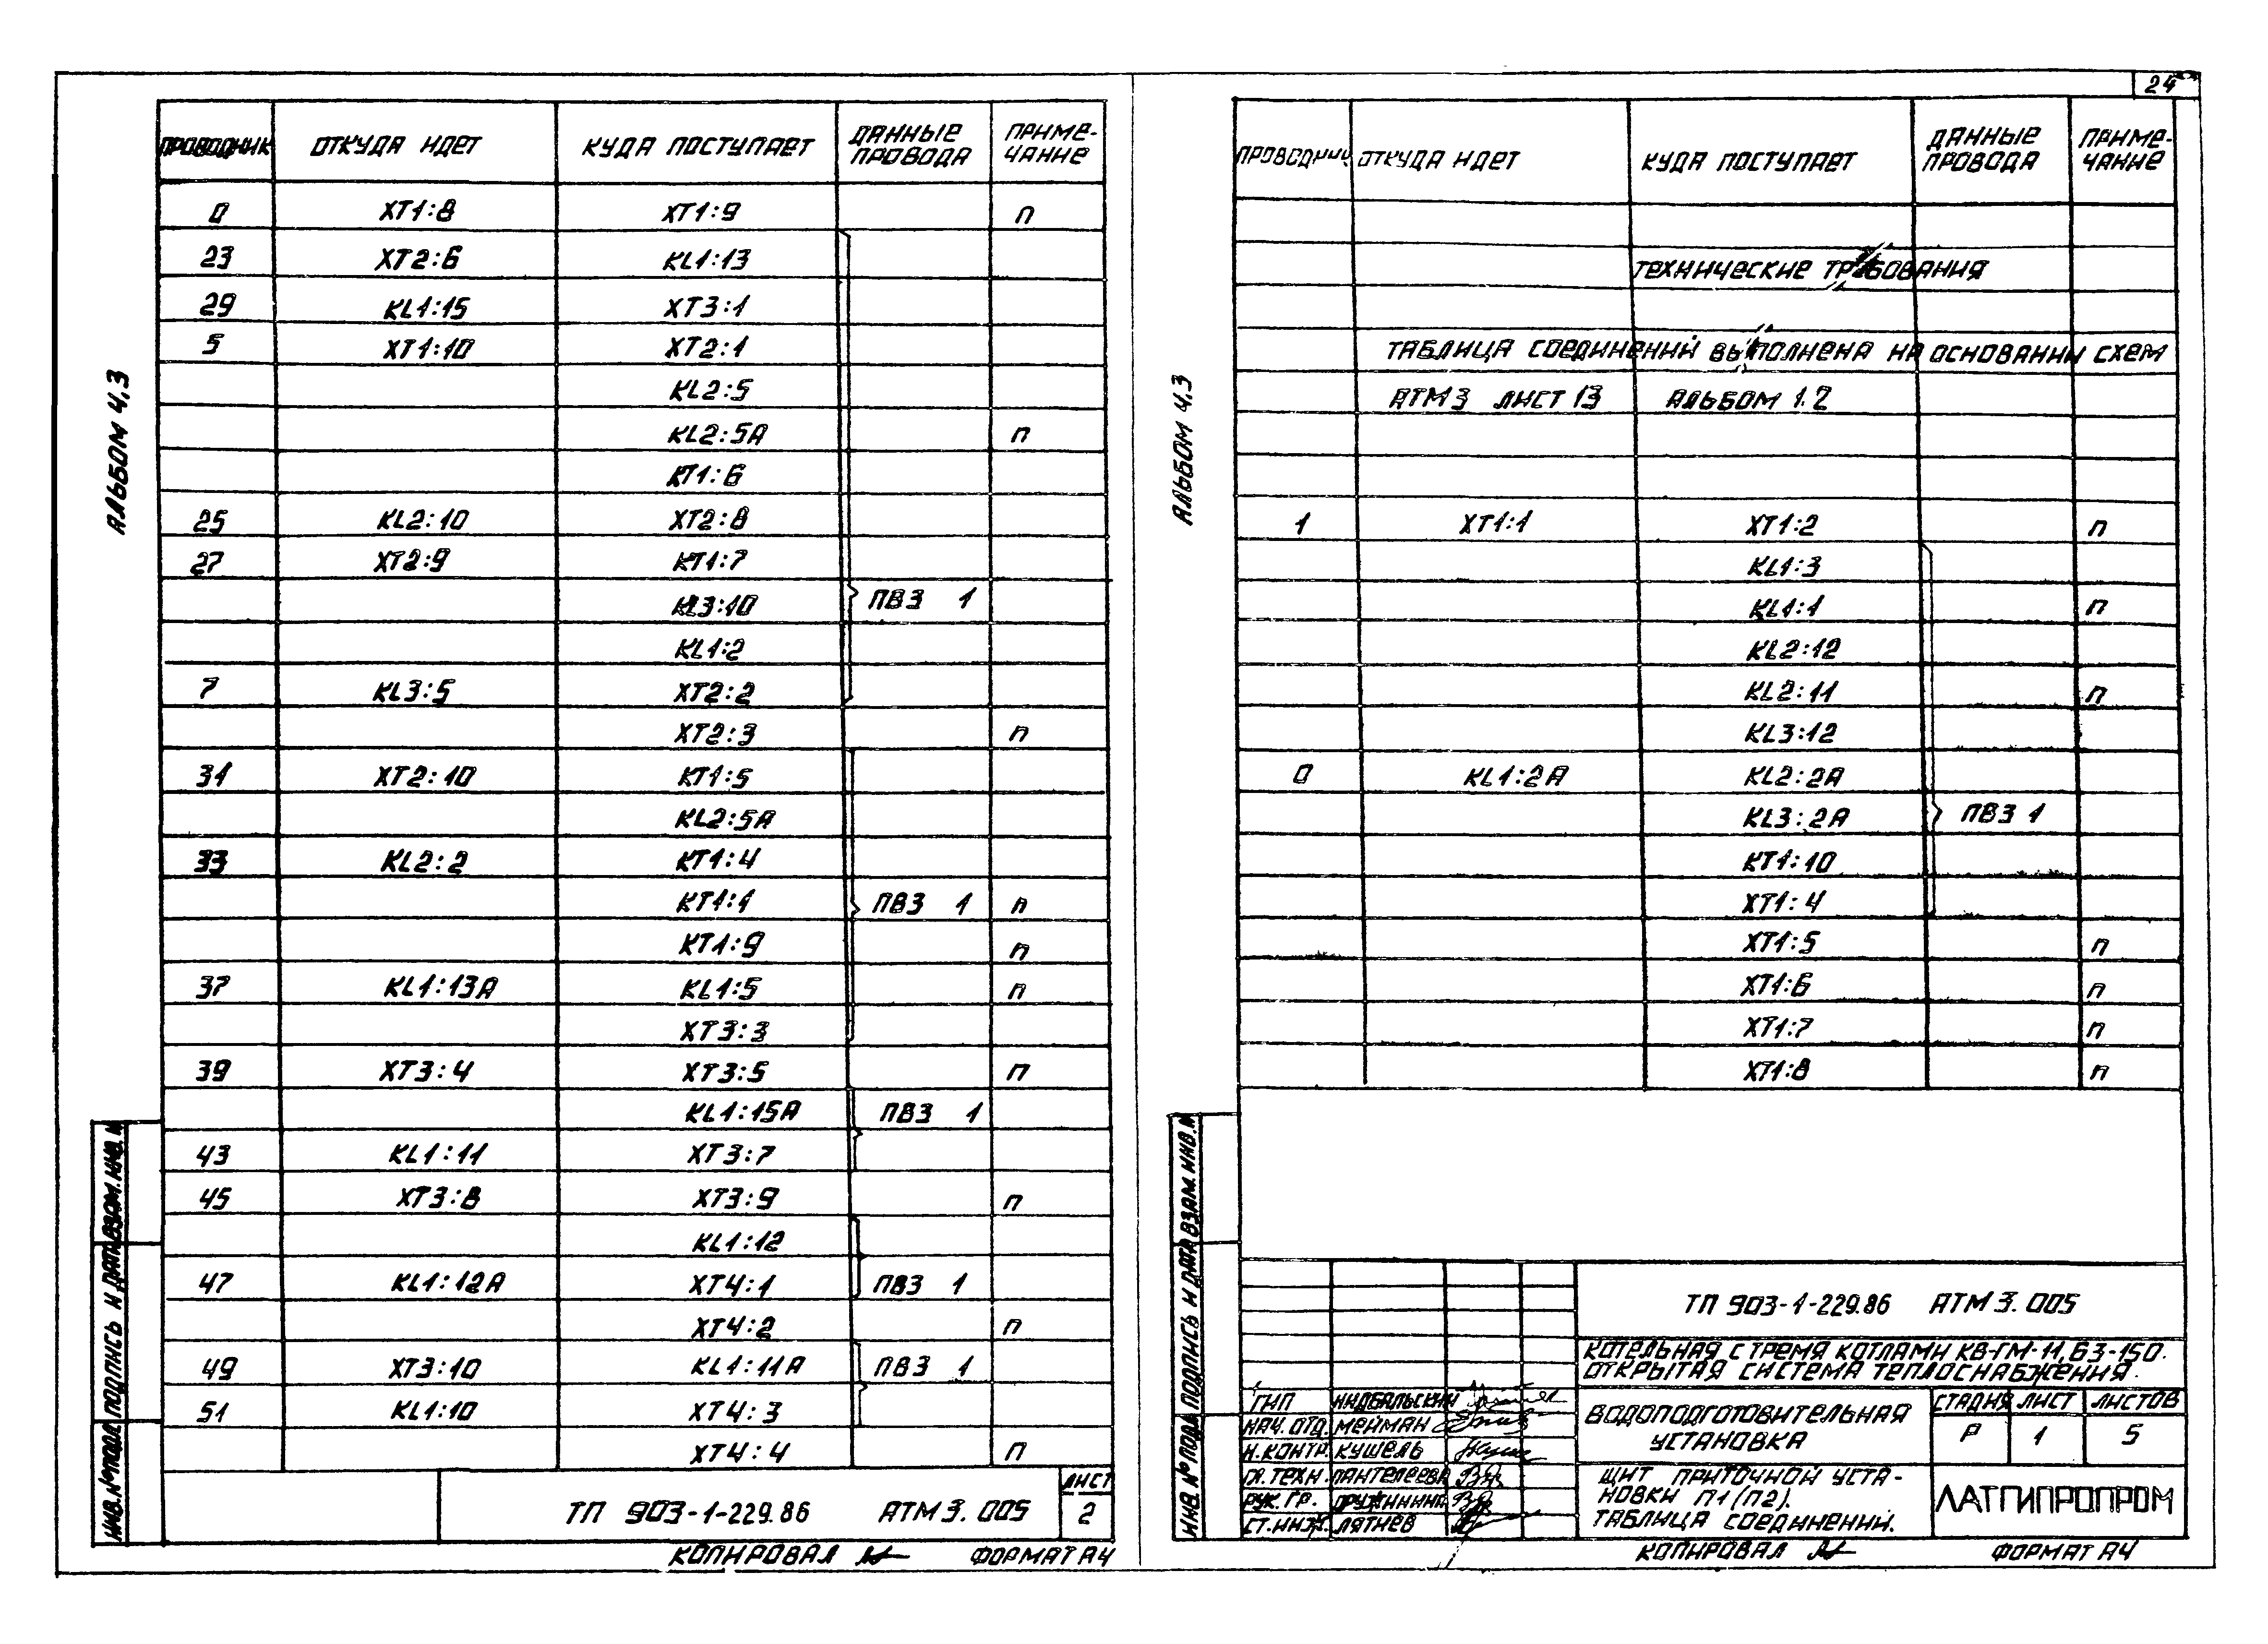 24
АЛЬБОМ 4.3
ПРОВОДНИК ОТКУДА ИДЕТ КУДА ПОСТУПАЕТ ДАННЫЕ ПРОВОДА ПРИМЕ-ЧАНИЕ
0 XT1:8 XT1:9 П
23 XT2:6 KL1:13
29 KL1:15 XT3:1
5 XT1:10 XT2:1
KL2:5
KL2:5А П
KT1:6
25 KL2:10 XT2:8
27 XT2:9 KT1:7
KL3:10 ПВ3 1
KL1:2
7 KL3:5 XT2:2
XT2:3 П
31 XT2:10 KT1:5
KL2:5А
33 KL2:2 KT1:4
KT1:1 ПВ3 1 П
KT1:9 П
37 KL1:13А KL1:5 П
XT3:3
39 XT3:4 XT3:5 П
KL1:15А ПВ3 1
43 KL1:11 XT3:7
45 XT3:8 XT3:9 П
KL1:12
47 KL1:12А XT4:1 ПВ3 1
XT4:2 П
49 XT3:10 KL1:11А ПВ3 1
51 KL1:10 XT4:3
XT4:4 П
ТП 903-1-229.86 АТМ3.005
ЛИСТ
2
ИНВ.№ПОДЛ ПОДПИСЬ И ДАТА ВЗАМ.ИНВ.№
КОПИРОВАЛ ФОРМАТ А4
АЛЬБОМ 4.3
ПРОВОДНИК ОТКУДА ИДЕТ КУДА ПОСТУПАЕТ ДАННЫЕ ПРОВОДА ПРИМЕ-ЧАНИЕ
ТЕХНИЧЕСКИЕ ТРЕБОВАНИЯ
ТАБЛИЦА СОЕДИНЕНИЙ ВЫПОЛНЕНА НА ОСНОВАНИИ СХЕМ
АТМ3 ЛИСТ 13 АЛЬБОМ 1.2
1 XT1:1 XT1:2 П
KL1:3
KL1:1 П
KL2:12
KL2:11 П
KL3:12
0 KL1:2А KL2:2А
KL3:2А ПВ3 1
KT1:10
XT1:4
XT1:5 П
XT1:6 П
XT1:7 П
XT1:8 П
ТП 903-1-229.86 АТМ3.005
КОТЕЛЬНАЯ С ТРЕМЯ КОТЛАМИ КВ-ГМ-11,63-150.
ОТКРЫТАЯ СИСТЕМА ТЕПЛОСНАБЖЕНИЯ.
ГИП
НАЧ.ОТД. МЕЙМАН
Н.КОНТР. КУШЕЛЬ
ГЛ.ТЕХН. ПАНТЕЛЕЕВА
РУК.ГР. ДРУЖИНИНА
СТ.ИНЖ. ЛЯТИЕВ
ВОДОПОДГОТОВИТЕЛЬНАЯ
УСТАНОВКА
СТАДИЯ ЛИСТ ЛИСТОВ
Р 1 5
ЩИТ ПРИТОЧНОЙ УСТА-
НОВКИ П1(П2).
ТАБЛИЦА СОЕДИНЕНИЙ.
ЛАТГИПРОПРОМ
ИНВ.№ПОДЛ ПОДПИСЬ И ДАТА ВЗАМ.ИНВ.№
КОПИРОВАЛ ФОРМАТ А4